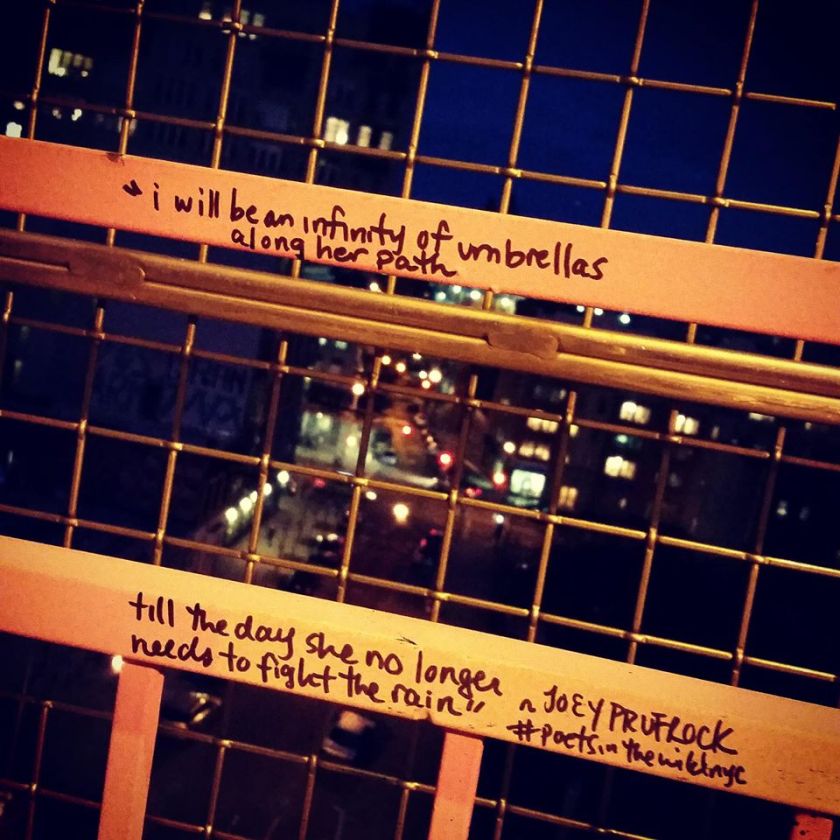 → i will be an infinity of umbrellas
along her path
till the day she no longer
needs to fight the rain"
~ JOEY PRUFROCK
#poetsinthewildnyc